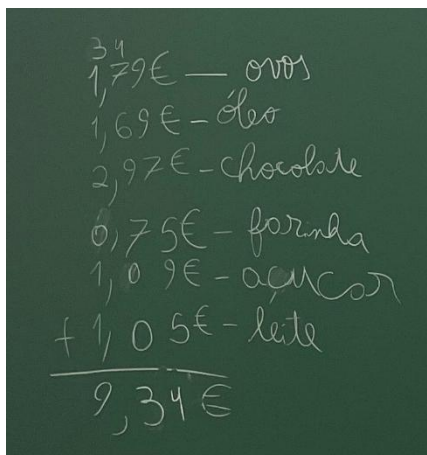 34
1,79€ — ovos
1,69€ - óleo
2,97€ - chocolate
0,75€ - farinha
1,09€ - açúcar
+ 1,05€ - leite
9,34€